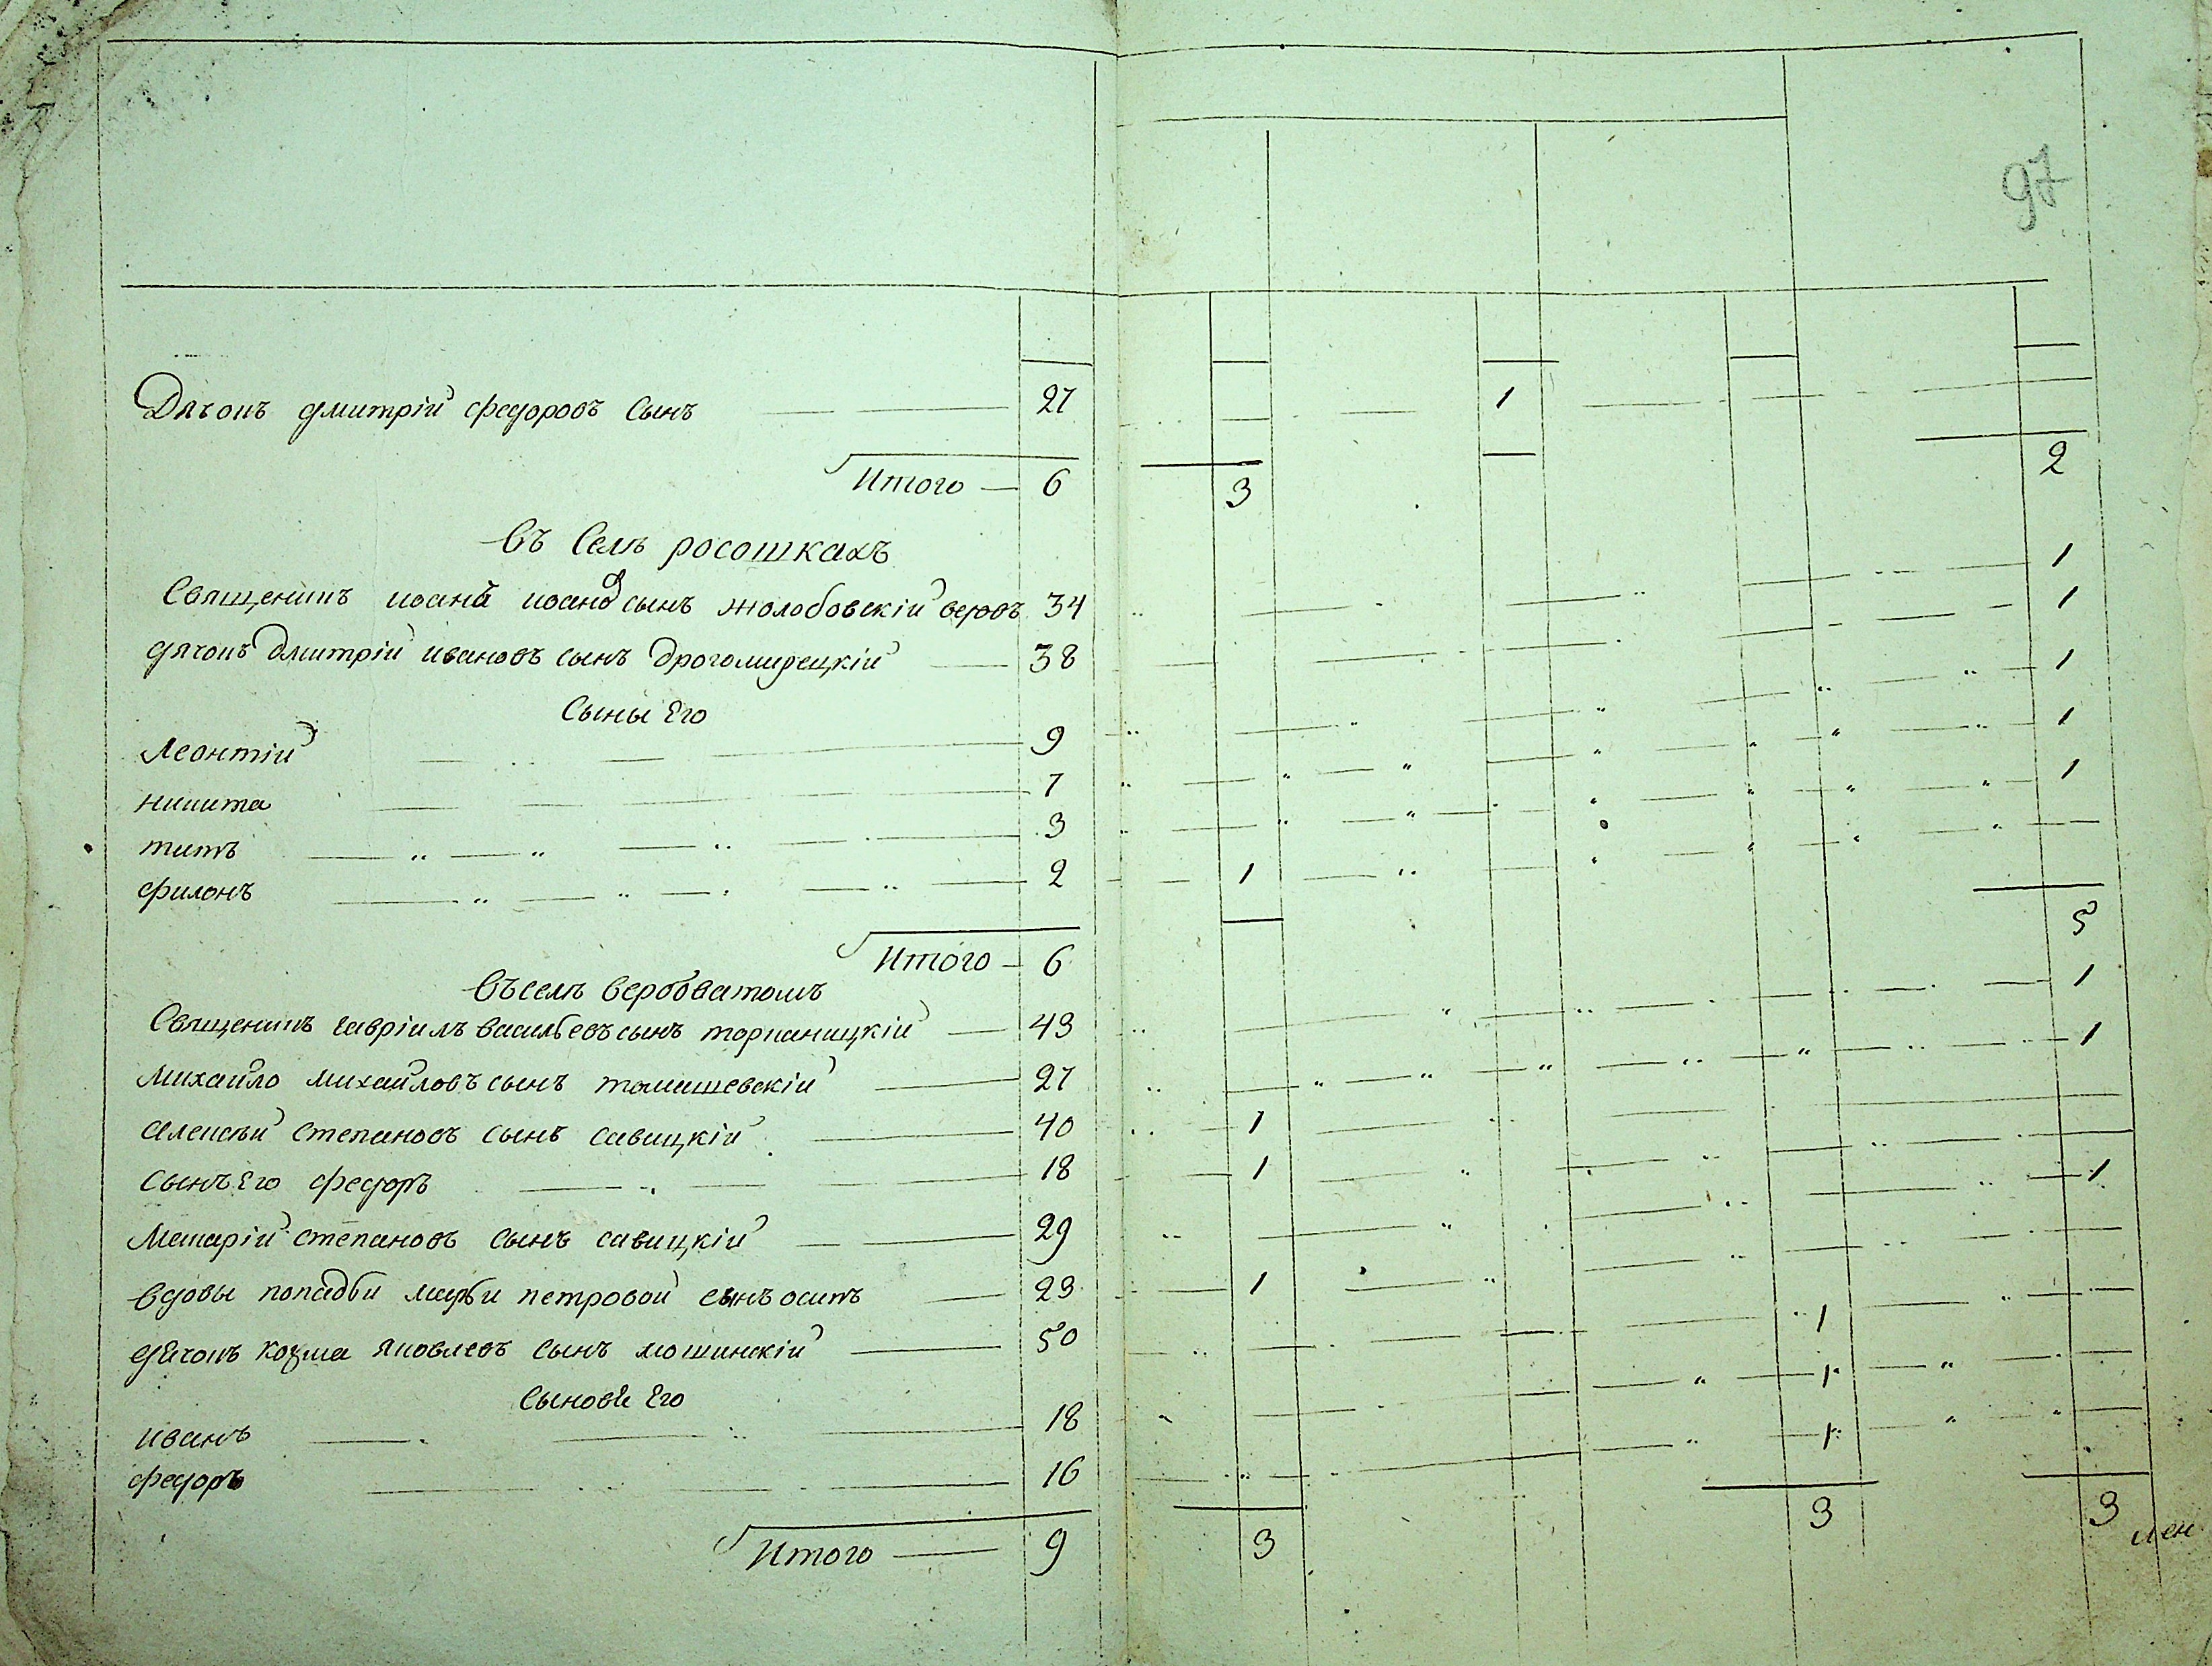 97
Дячокъ дмитрій федоровъ сынъ 27 1
Итого 6 3 2
Въ Селѣ росошкахъ
Священикъ иоанъ сынъ жолобовскій вдовъ 34 1
дячокъ Дмитрій ивановъ сынъ Дрогомирецкій 38 1
Сыны Его
Леонтій 9 1
никита 7 1
титъ 3 1
филонъ 2 1
Итого 6 5
Въ селѣ Вербоватомъ
Священикъ Гавріилъ васильевъ сынъ торчаницкій 43 1
Михайло михайловъ сынъ томашевскій 27 1
алексѣй степановъ сынъ савицкій 40 1
Сынъ Его федоръ 18 1
Макарій степановъ сынъ савицкій 29 1
Вдовы попадьи марьи петровой сынъ осипъ 23 1
дячокъ козма яковлевъ сынъ мошинскій 50 1
Сыновя Его
иванъ 18 1
федоръ 16 1
Итого 9 3 3 3